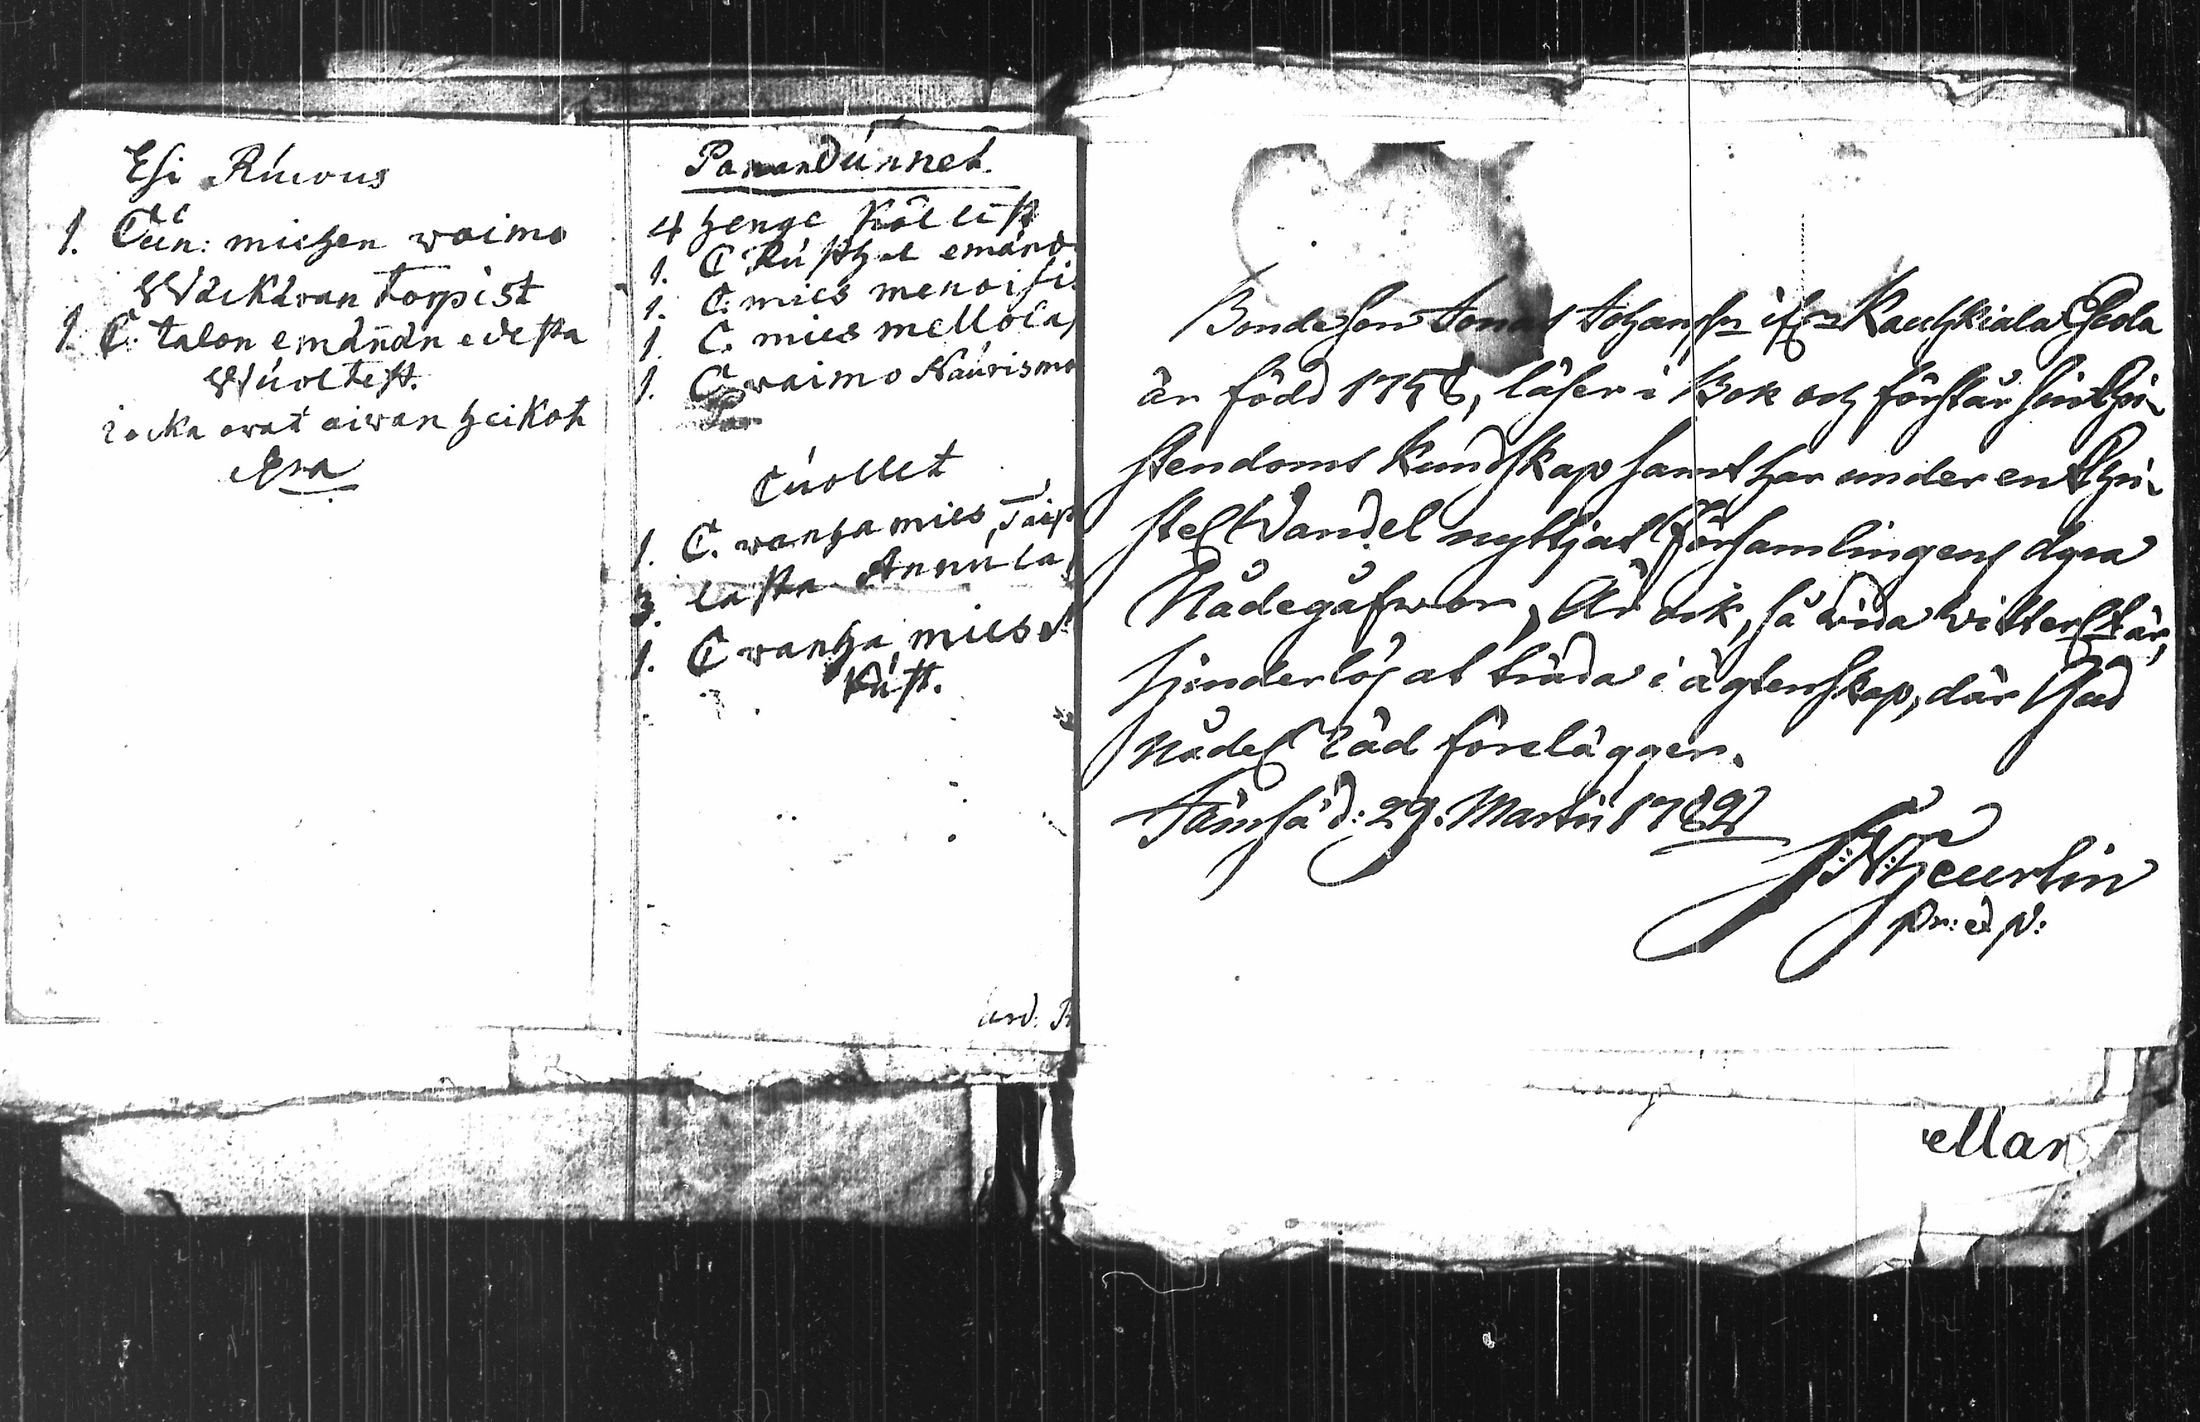 Esi Rucous
1. C. Cun: miehen waimo
Wäckäwan torpist
1. C. talon emännän edestä
Wuoltest.
jocka owat aiwan heikot
Era
Parandunnet.
4 henge Köllist
1. C Rusthol emänd
1. C. mies menoisis
1 C. mies mellolas
1. C waimo Naurismo
Cuollet
1. C. wanha mies, Taip
3. lasta Annulas
1. C wanha mies
Kust.
Bondeson Jonas Johansson ifrån Kauhkiala Eskola
är född 1758, läser i Bok och förstår sin Chri-
stendoms kundskap samt har under en Chri-
stel. Vandel nyttjat Församlingens dyra
Nådegåfwor, Är ock, så vida vitterl. är,
hinderlös at träda i ägtenskap, där Gud
nådel. råd förelägger.
Jämsä d: 29. Martii 1782
N: Heurlin
Pr: et P:
ellan